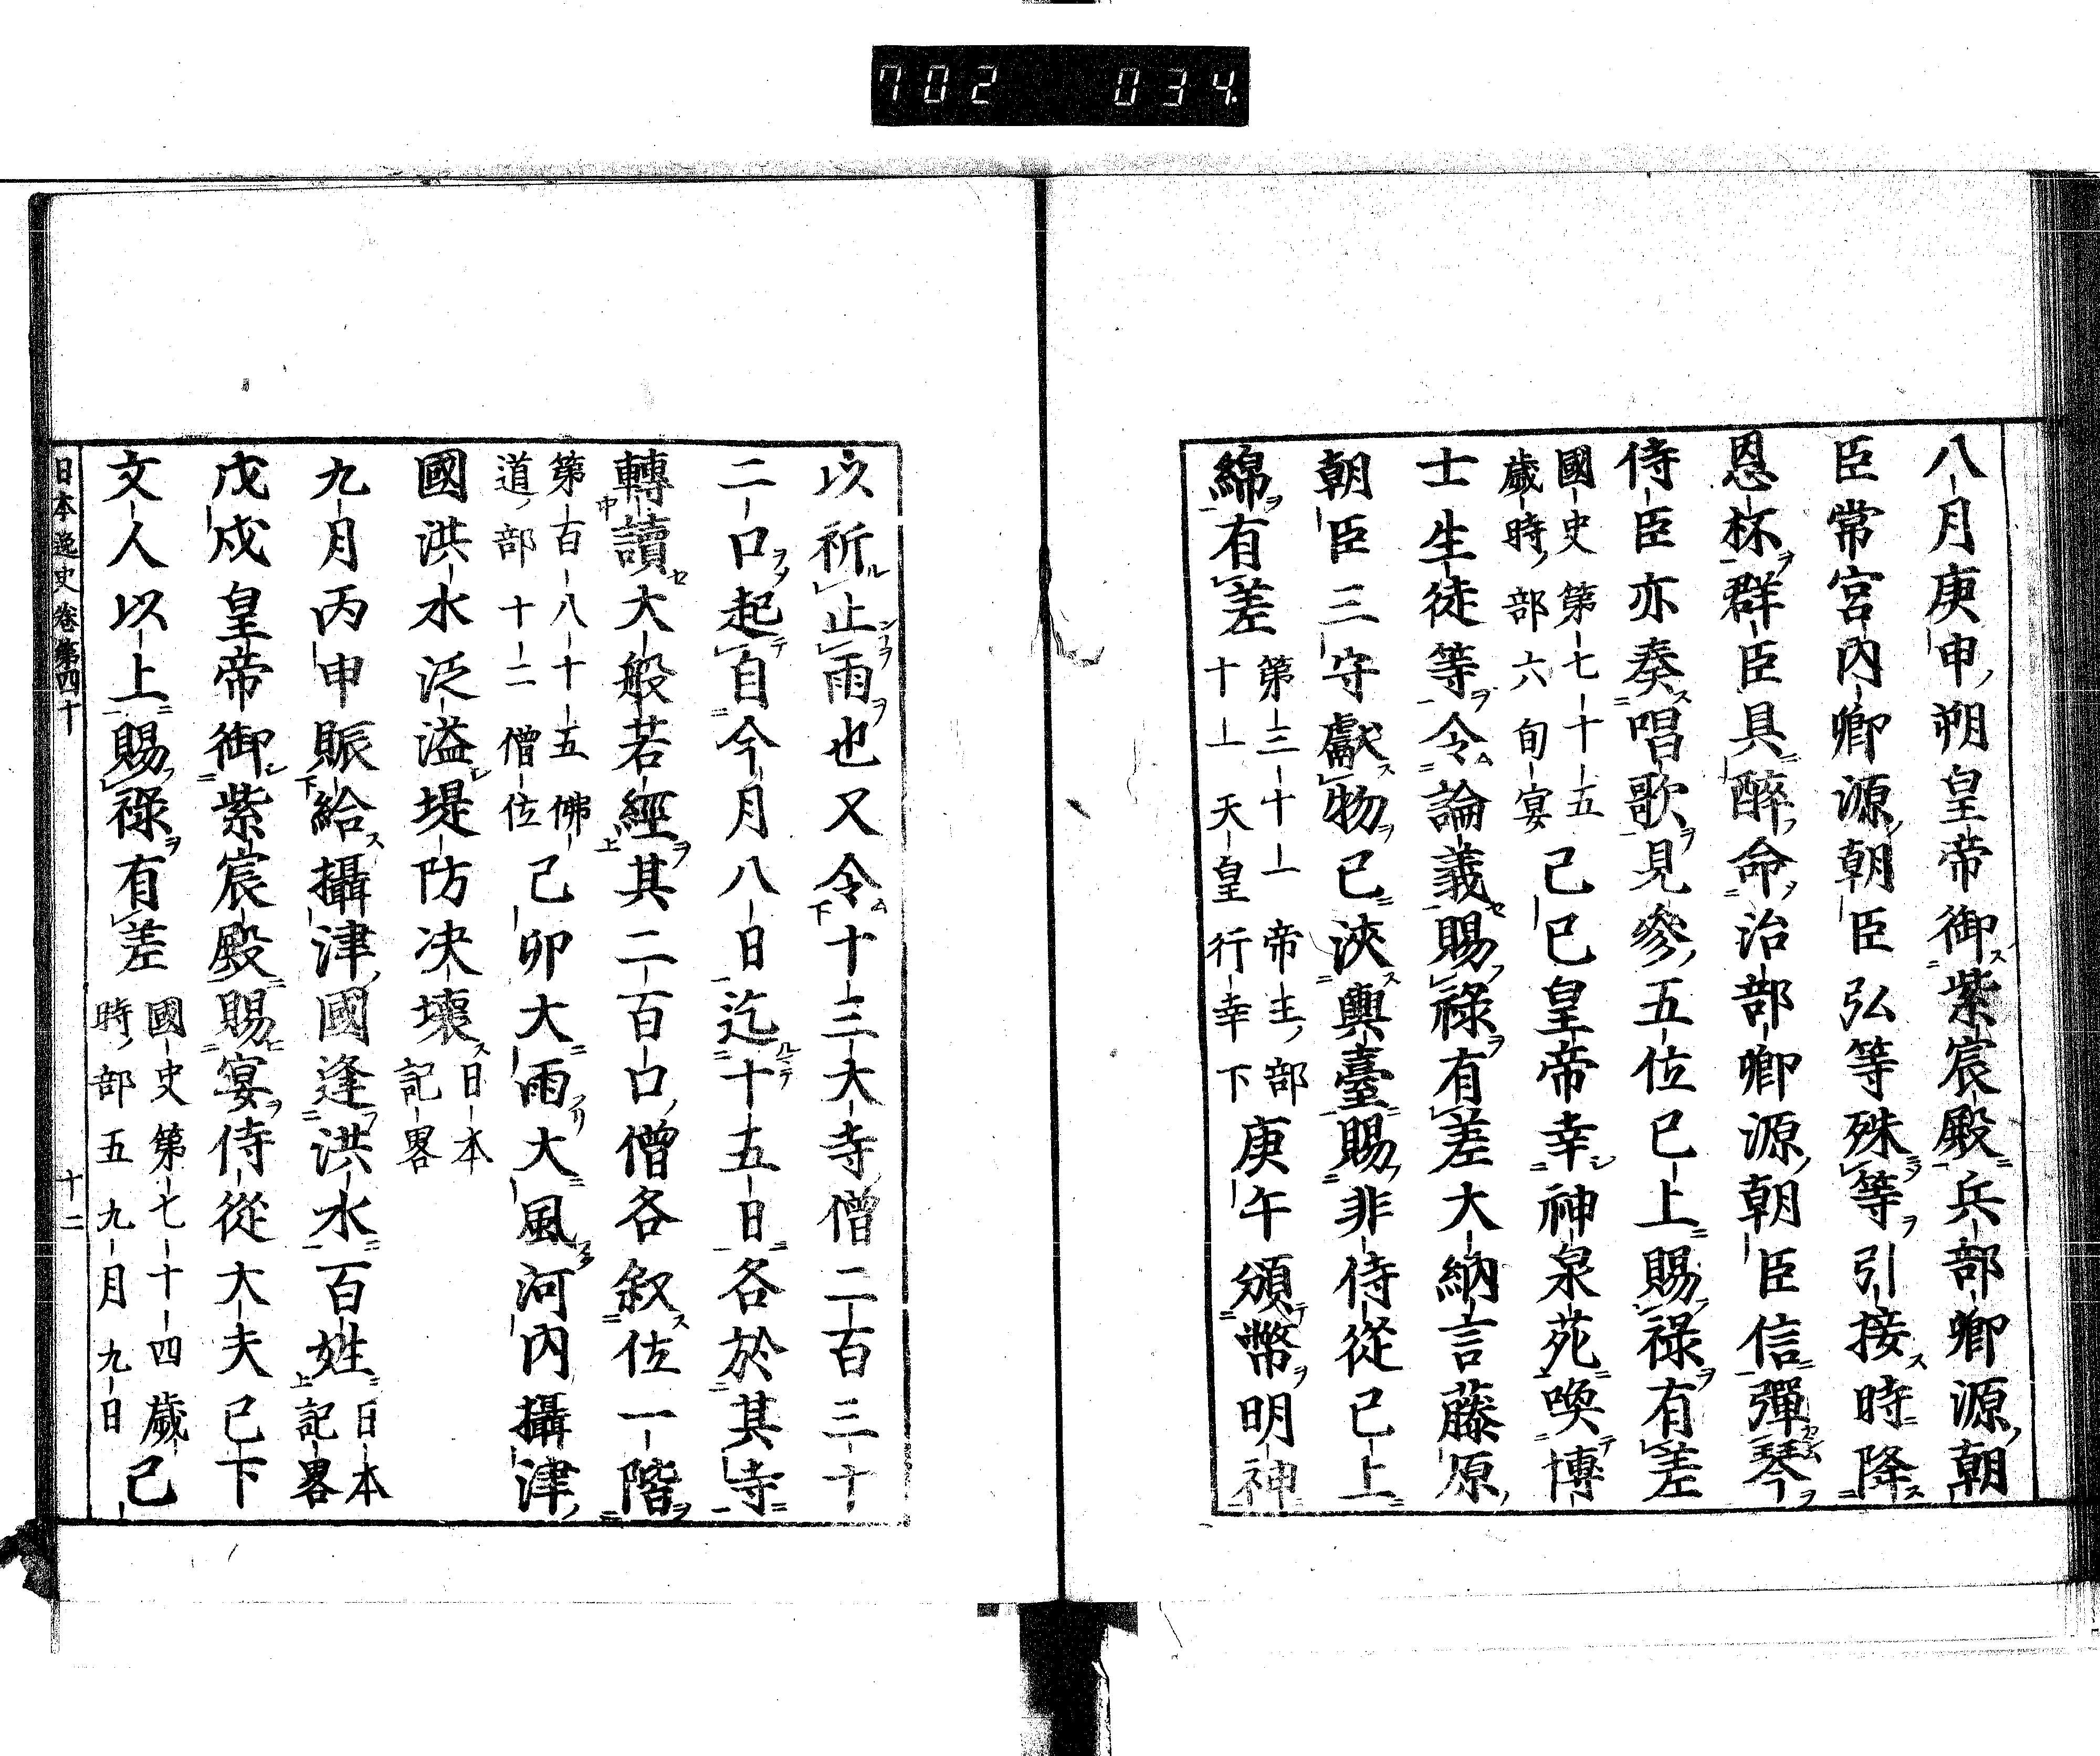 702 034
八月庚申朔皇帝御紫宸殿兵部卿源朝
臣常宮內卿源朝臣弘等殊等引接時降
恩杯群臣具醉命治部卿源朝臣信彈琴
侍臣亦奏唱歌見參五位已上賜祿有差
國史第七十五
歲時部六旬宴
己巳皇帝幸神泉苑喚博
士生徒等令論義賜祿有差大納言藤原
朝臣三守獻物已浹輿臺賜非侍從已上
綿有差
第三十一帝主部
十一天皇行幸下
庚午頒幣明神
以祈止雨也又令十三大寺僧二百三十
二口起自今月八日迄十五日各於其寺
轉讀大般若經其二百口僧各叙位一階
第百八十五佛
道部十二僧位
己卯大雨大風河內攝津
國洪水泛溢堤防決壞
日本
記畧
九月丙申賑給攝津國逢洪水百姓
日本
記畧
戊戌皇帝御紫宸殿賜宴侍從大夫已下
文人以上賜祿有差
國史第七十四歲
時部五九月九日
己
日本逸史卷第四十
十二